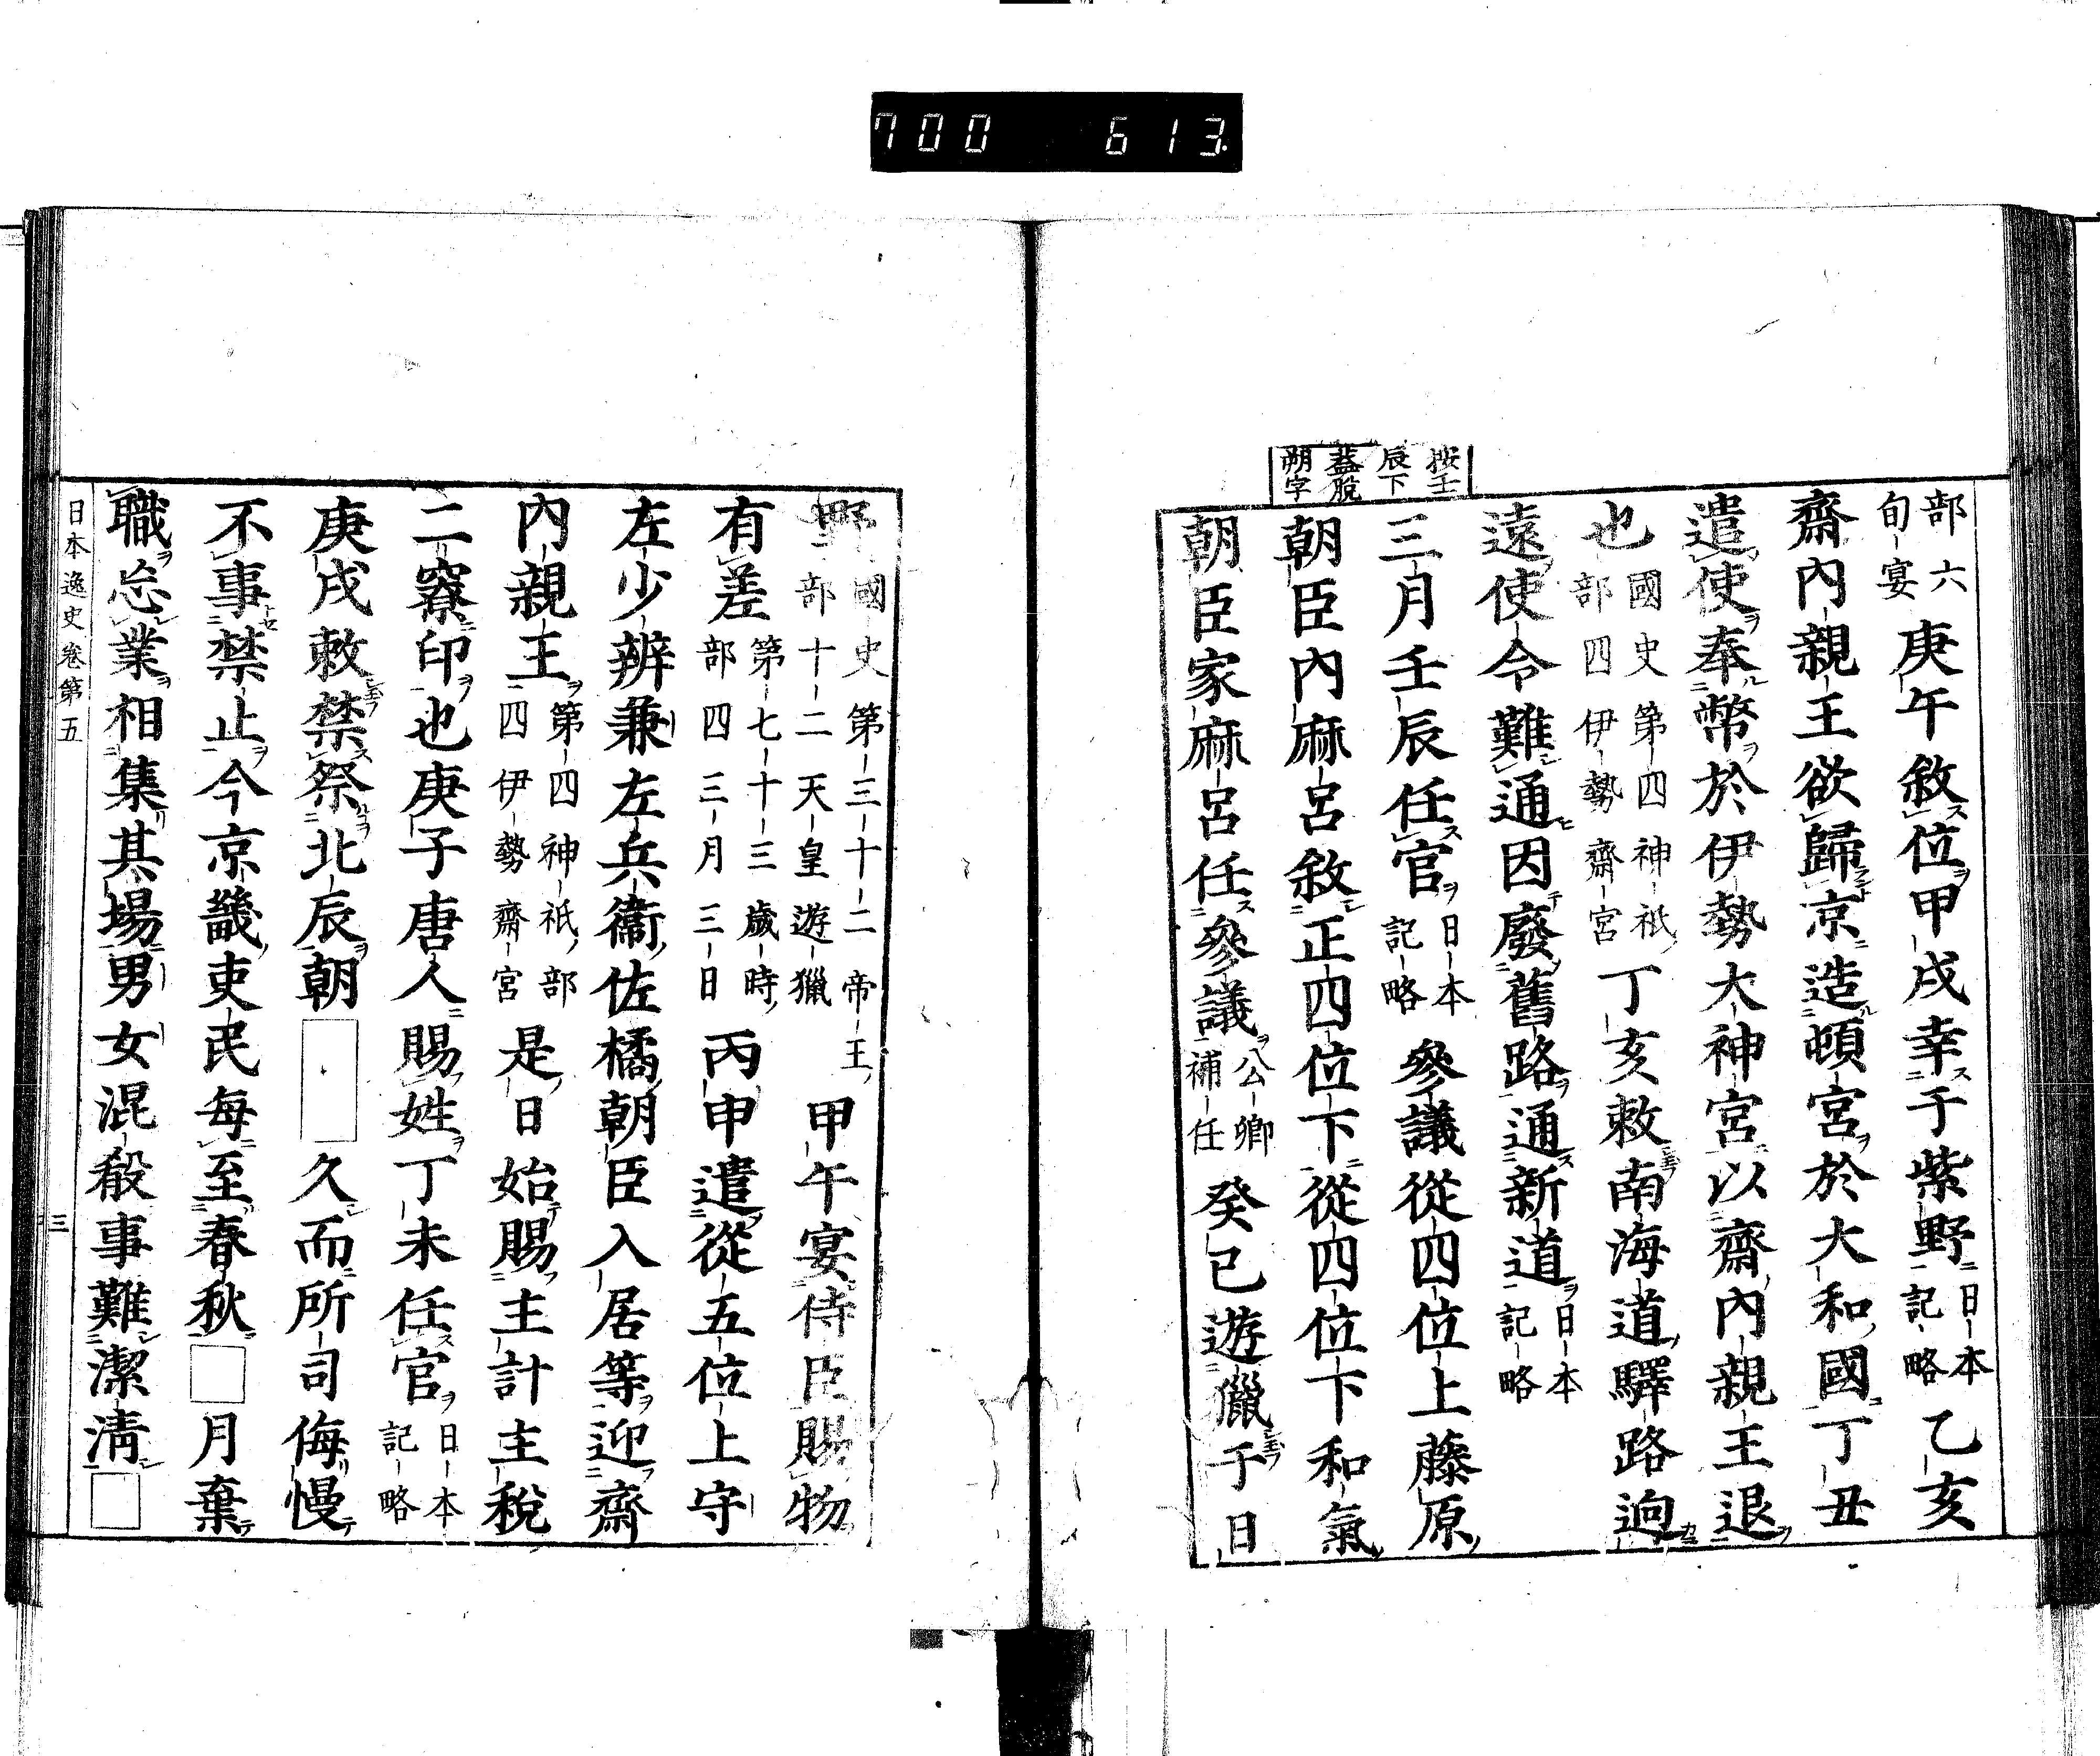 700 613
按壬
辰下
蓋脫
朔字
部六
旬宴
庚午敘位甲戌幸于紫野
日本
記略
乙亥
齋內親王欲歸京造頓宮於大和國丁丑
遣使奉幣於伊勢大神宮以齋內親王退
也
國史第四神祇
部四伊勢齋宮
丁亥敕南海道驛路逈
遠使令難通因廢舊路通新道
日本
記略
三月壬辰任官
日本
記略
參議從四位上藤原
朝臣內麻呂敘正四位下從四位下和氣
朝臣家麻呂任參議
公卿
補任
癸巳遊獵于日
野
國史第三十二帝王
部十二天皇遊獵
甲午宴侍臣賜物
有差
第七十三歲時
部四三月三日
丙申遣從五位上守
左少辨兼左兵衞佐橘朝臣入居等迎齋
內親王
第四神祇部
四伊勢齋宮
是日始賜主計主稅
二寮印也庚子唐人賜姓丁未任官
日本
記略
庚戌敕禁祭北辰朝□久而所司侮慢
不事禁止今京畿吏民每至春秋□月棄
職忘業相集其場男女混殽事難潔淸□
日本逸史卷第五
三